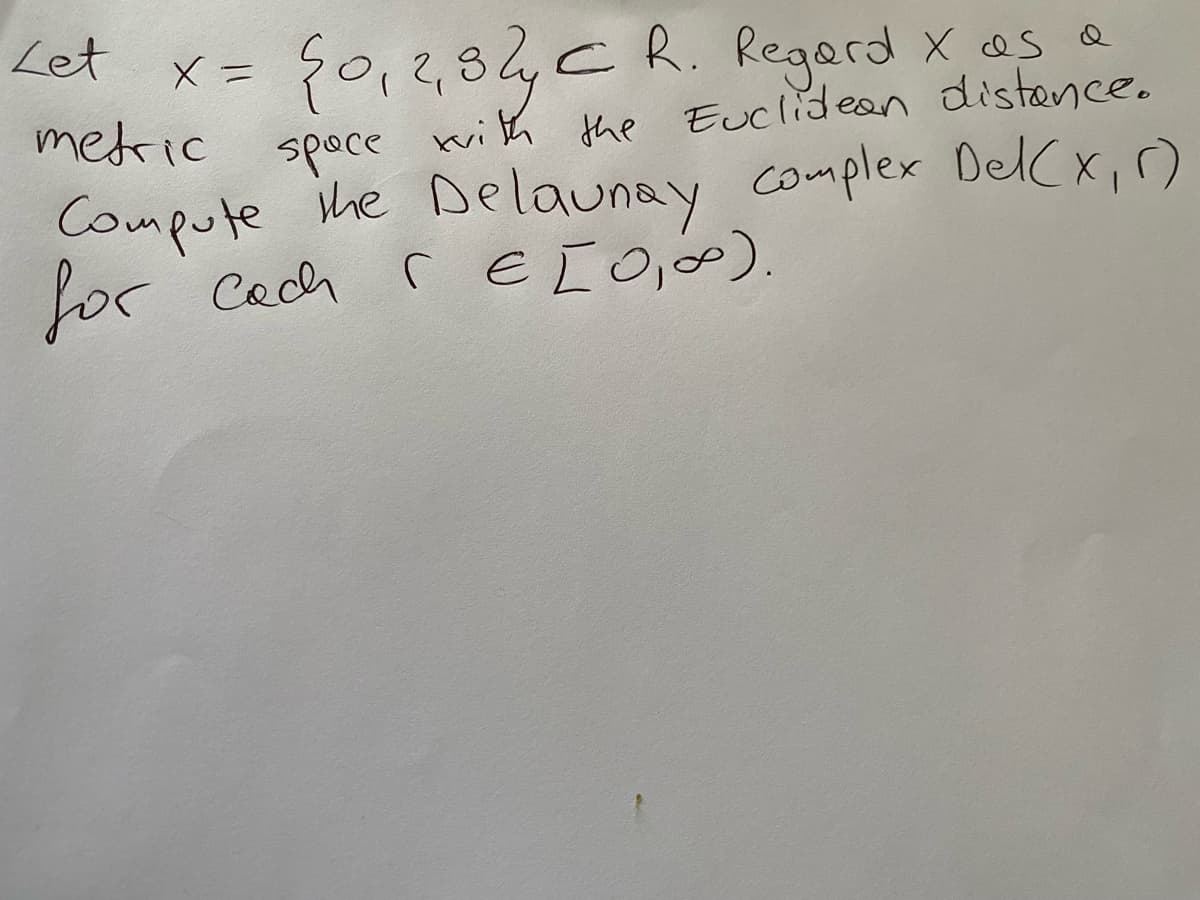 Let x = {0, 2, 8} ⊂ R. Regard X as a
metric space with the Euclidean distance.
Compute the Delaunay complex Del(x, r)
for each r ∈ [0, ∞).